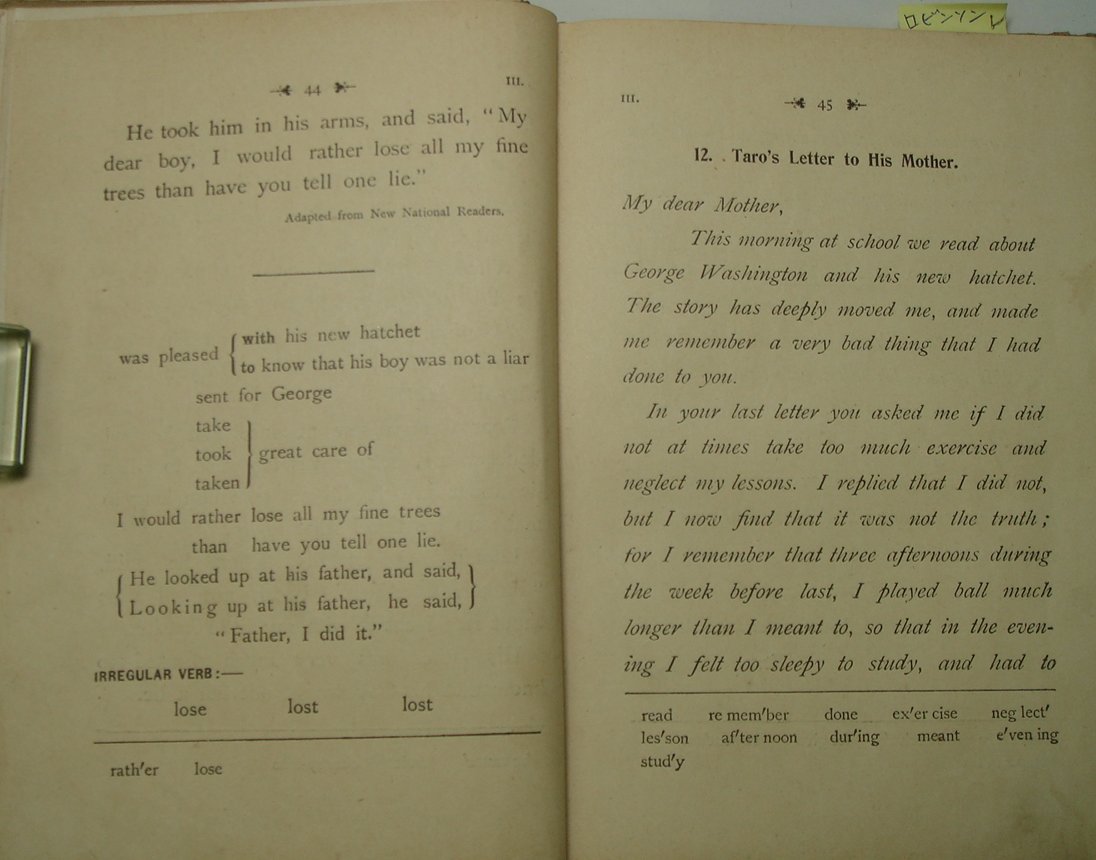 44
III.
He took him in his arms, and said, "My
dear boy, I would rather lose all my fine
trees than have you tell one lie."
Adapted from New National Readers.
was pleased { with his new hatchet
to know that his boy was not a liar
sent for George
take
took } great care of
taken
I would rather lose all my fine trees
than have you tell one lie.
{ He looked up at his father, and said, }
Looking up at his father, he said,
"Father, I did it."
IRREGULAR VERB:—
lose lost lost
rath'er lose
ロビンソン
III.
45
12. Taro's Letter to His Mother.
My dear Mother,
This morning at school we read about
George Washington and his new hatchet.
The story has deeply moved me, and made
me remember a very bad thing that I had
done to you.
In your last letter you asked me if I did
not at times take too much exercise and
neglect my lessons. I replied that I did not,
but I now find that it was not the truth;
for I remember that three afternoons during
the week before last, I played ball much
longer than I meant to, so that in the even-
ing I felt too sleepy to study, and had to
read re mem'ber done ex'er cise neg lect'
les'son af'ter noon dur'ing meant e'ven ing
stud'y